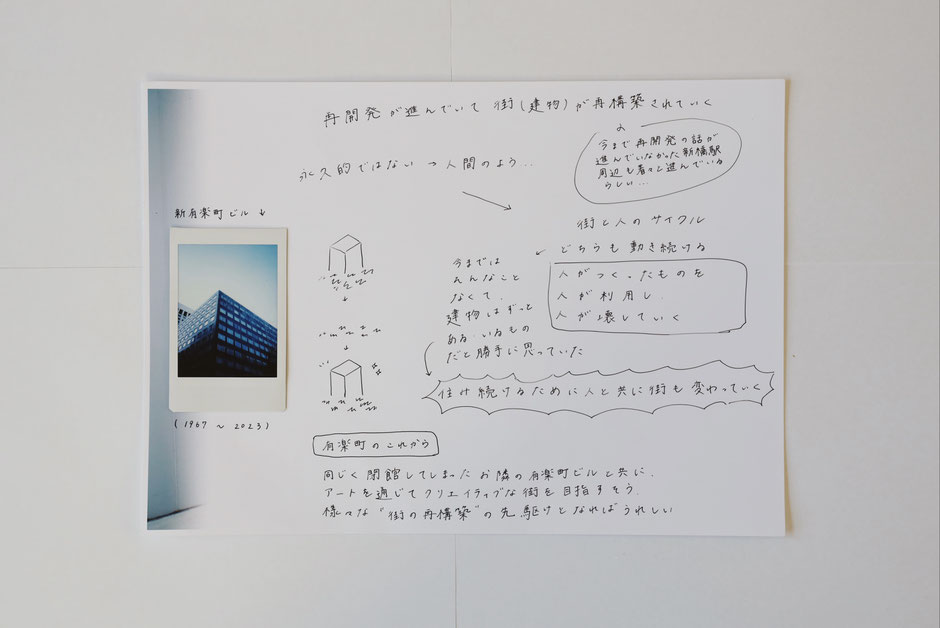 再開発が進んでいて 街(建物)が再構築されていく
今まで再開発の話が
進んでいなかった新橋駅
周辺も着々と進んでいる
らしい…
永久的ではない → 人間のよう…
街と人のサイクル
どちらも動き続ける
人がつくったものを
人が利用し、
人が壊していく
今までは
そんなこと
なくて、
建物はずっと
ある・いるもの
だと勝手に思っていた
住み続けるために人と共に街も変わっていく
新有楽町ビル ↓
(1967 〜 2023)
有楽町のこれから
同じく閉館してしまったお隣の有楽町ビルと共に、
アートを通じてクリエイティブな街を目指すそう。
様々な"街の再構築"の先駆けとなればうれしい